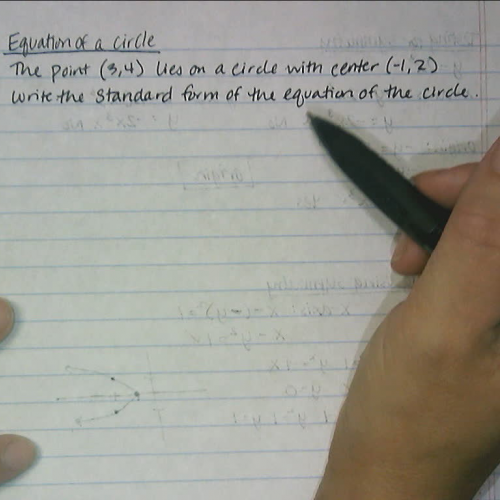 Equation of a circle
The point (3,4) lies on a circle with center (-1,2)
Write the standard form of the equation of the circle.